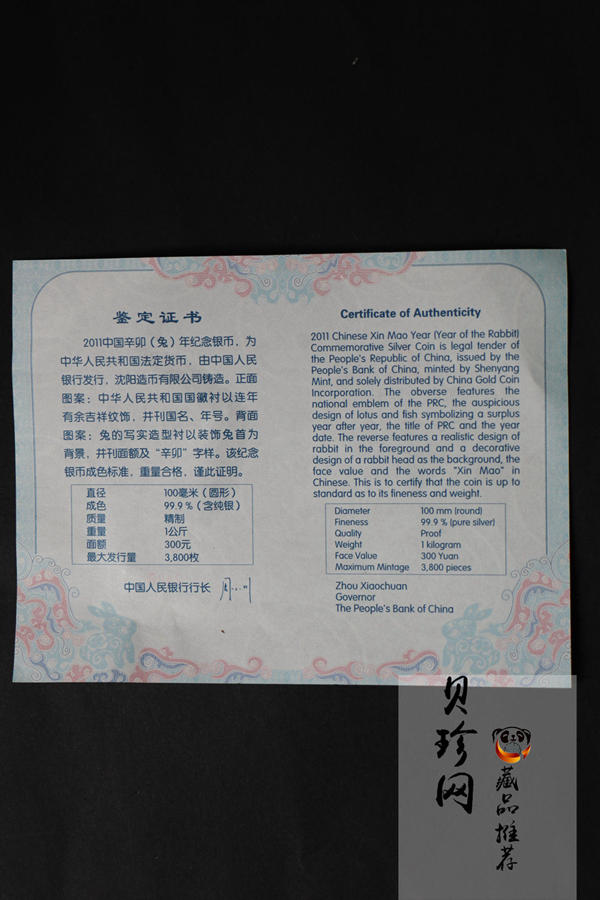 鉴定证书
2011中国辛卯（兔）年纪念银币，为
中华人民共和国法定货币，由中国人民
银行发行，沈阳造币有限公司铸造。正面
图案：中华人民共和国国徽衬以连年
有余吉祥纹饰，并刊国名、年号。背面
图案：兔的写实造型衬以装饰兔首为
背景，并刊面额及“辛卯”字样。该纪念
银币成色标准，重量合格，谨此证明。
直径 100毫米（圆形）
成色 99.9％（含纯银）
质量 精制
重量 1公斤
面额 300元
最大发行量 3,800枚
中国人民银行行长
Certificate of Authenticity
2011 Chinese Xin Mao Year (Year of the Rabbit)
Commemorative Silver Coin is legal tender of
the People's Republic of China, issued by the
People's Bank of China, minted by Shenyang
Mint, and solely distributed by China Gold Coin
Incorporation. The obverse features the
national emblem of the PRC, the auspicious
design of lotus and fish symbolizing a surplus
year after year, the title of PRC and the year
date. The reverse features a realistic design of
rabbit in the foreground and a decorative
design of a rabbit head as the background, the
face value and the words "Xin Mao" in
Chinese. This is to certify that the coin is up to
standard as to its fineness and weight.
Diameter 100 mm (round)
Fineness 99.9 % (pure silver)
Quality Proof
Weight 1 kilogram
Face Value 300 Yuan
Maximum Mintage 3,800 pieces
Zhou Xiaochuan
Governor
The People's Bank of China
贝珍网
藏品推荐